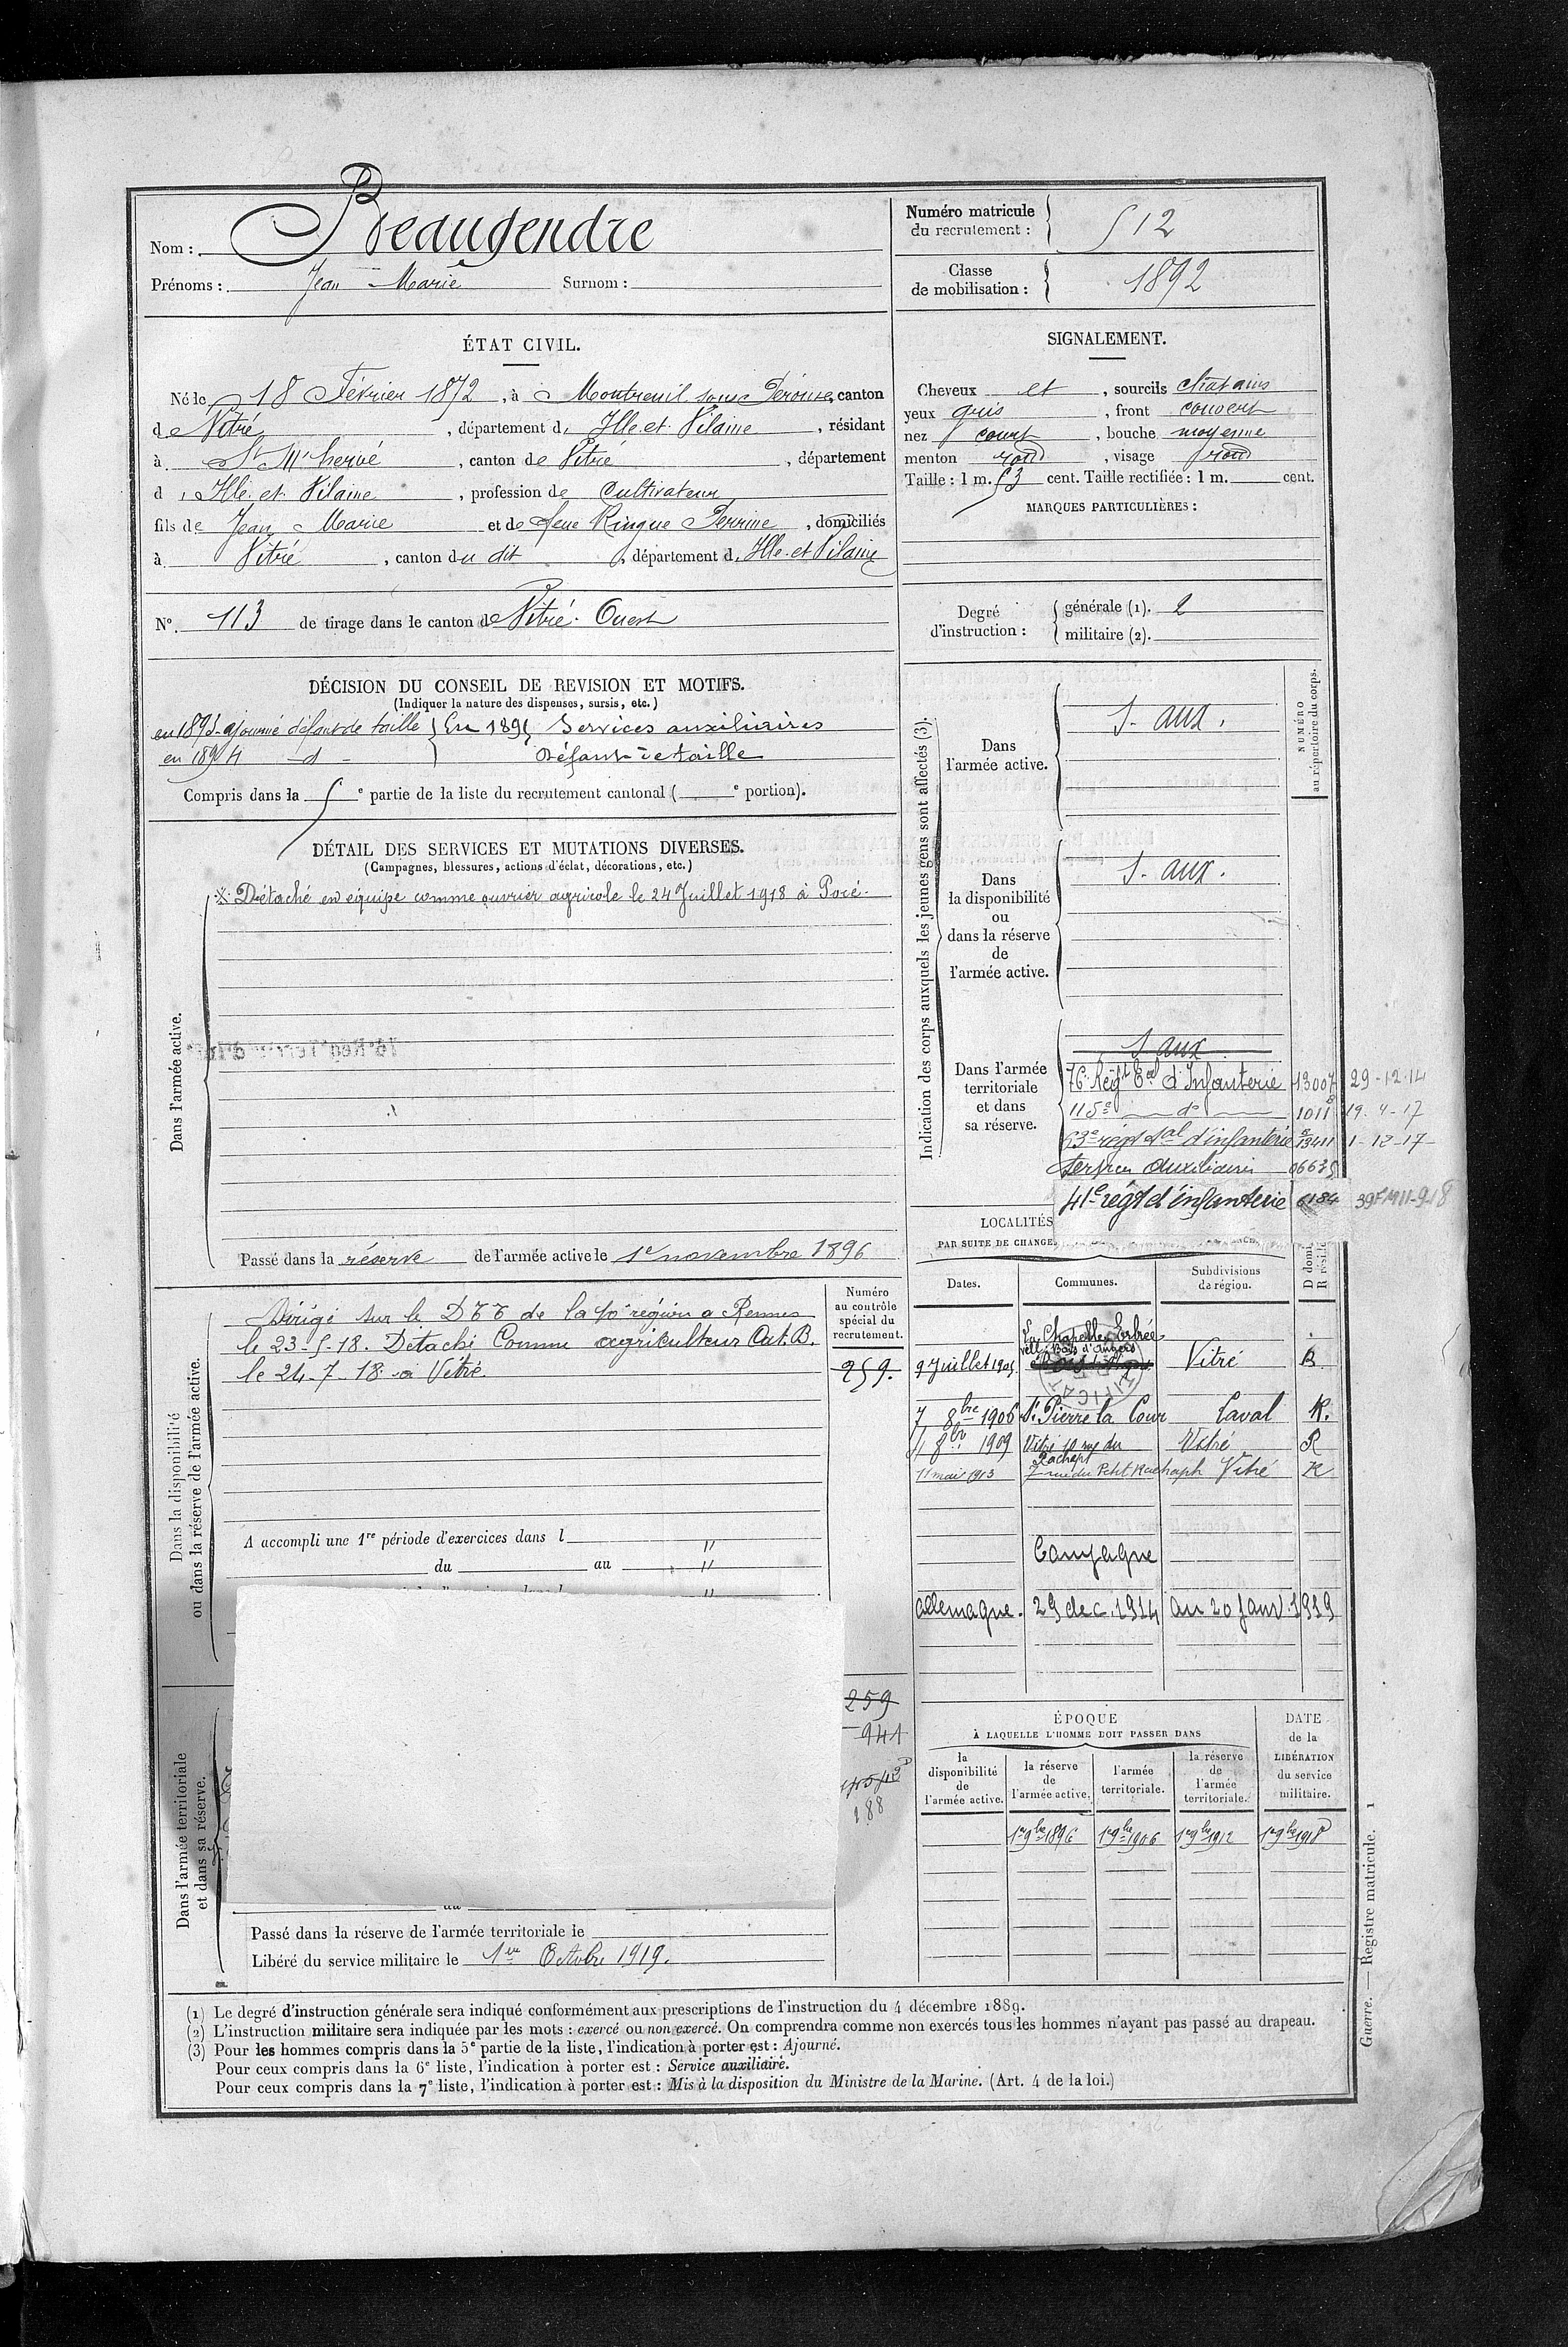 Nom : Beaugendre
Prénoms : Jean Marie Surnom :
Numéro matricule du recrutement : 512
Classe de mobilisation : 1892
ÉTAT CIVIL.
Né le 18 Février 1872, à Montreuil sous Pérouse, canton
de Vitré, département d'Ille et Vilaine, résidant
à St M'hervé, canton de Vitré, département
d'Ille et Vilaine, profession de Cultivateur
fils de Jean Marie et de feue Ringue Perrine, domiciliés
à Vitré, canton du dit, département d'Ille et Vilaine
N° 113 de tirage dans le canton de Vitré Ouest
SIGNALEMENT.
Cheveux et, sourcils chatains
yeux gris, front couvert
nez court, bouche moyenne
menton rond, visage rond
Taille : 1 m. 53 cent. Taille rectifiée : 1 m. cent.
MARQUES PARTICULIÈRES :
Degré d'instruction :
générale (1). 2
militaire (2).
DÉCISION DU CONSEIL DE REVISION ET MOTIFS.
(Indiquer la nature des dispenses, sursis, etc.)
en 1893 ajourné défaut de taille } En 1895 Services auxiliaires
en 1894 d° Défaut de taille
Compris dans la 5e partie de la liste du recrutement cantonal ( e portion).
DÉTAIL DES SERVICES ET MUTATIONS DIVERSES.
(Campagnes, blessures, actions d'éclat, décorations, etc.)
Dans l'armée active.
Détaché en équipe comme ouvrier agricole le 24 Juillet 1918 à Pocé
Passé dans la réserve de l'armée active le 1er novembre 1896
Dans la disponibilité
ou dans la réserve de l'armée active.
Dirigé sur le DTT de la 10e région a Rennes
le 23-5-18. Detaché Comme agriculteur Cat. B.
le 24-7-18 a Vitré.
A accompli une 1re période d'exercices dans l "
du au "
Numéro
au contrôle
spécial du
recrutement.
259.
259
941
188
Dans l'armée territoriale
et dans sa réserve.
Passé dans la réserve de l'armée territoriale le
Libéré du service militaire le 1er Octobre 1919.
Indication des corps auxquels les jeunes gens sont affectés (3).
NUMÉRO
au répertoire du corps.
Dans
l'armée active.
S. aux.
Dans
la disponibilité
ou
dans la réserve
de
l'armée active.
S. aux.
Dans l'armée
territoriale
et dans
sa réserve.
S. aux
76e Régt Eal d'Infanterie 13007 29-12-14
115e d° 1011 19-4-17
63e régt d'infanterie 13411 1-12-17
Services Auxiliaires 06635
41e régt d'infanterie 6184
LOCALITÉS
PAR SUITE DE CHANGE
Dates.
Communes.
Subdivisions
de région.
D domi
R résid
La Chapelle Erbrée
9 Juillet 1905 Vitré R
7 8bre 1906 St Pierre la Cour Laval R.
8bre 1909 Vitré 10 rue du Rachapt Vitré R
11 mai 1913 7 rue du Petit Rachapt Vitré R
Campagne
allemagne. 29 dec. 1914 au 20 janv. 1919
ÉPOQUE
À LAQUELLE L'HOMME DOIT PASSER DANS
DATE
de la
LIBÉRATION
du service
militaire.
la
disponibilité
de
l'armée active.
la réserve
de
l'armée active.
l'armée
territoriale.
la réserve
de
l'armée
territoriale.
1er 9bre 1896 1er 9bre 1906 1er 9bre 1912 1er 9bre 1918
(1) Le degré d'instruction générale sera indiqué conformément aux prescriptions de l'instruction du 4 décembre 1889.
(2) L'instruction militaire sera indiquée par les mots : exercé ou non exercé. On comprendra comme non exercés tous les hommes n'ayant pas passé au drapeau.
(3) Pour les hommes compris dans la 5e partie de la liste, l'indication à porter est : Ajourné.
Pour ceux compris dans la 6e liste, l'indication à porter est : Service auxiliaire.
Pour ceux compris dans la 7e liste, l'indication à porter est : Mis à la disposition du Ministre de la Marine. (Art. 4 de la loi.)
Guerre. — Registre matricule. 1